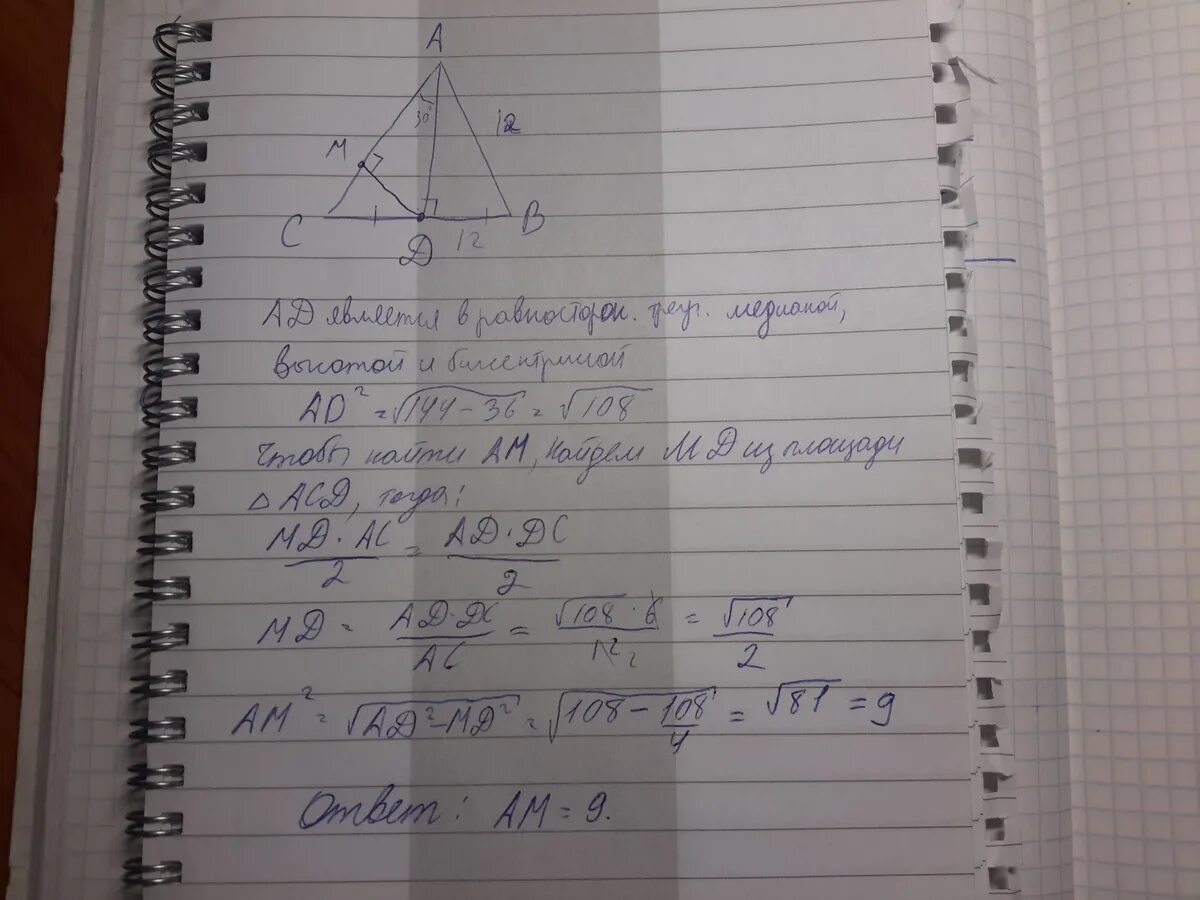 A
30°
12
M
C
D
12
B
AD является в равносторон. треуг. медианой,
высотой и биссектрисой
AD² = √144-36 = √108
Чтобы найти AM, найдем MD из площади
△ACD, тогда:
MD · AC / 2 = AD · DC / 2
MD = AD · DC / AC = √108 · 6 / 12 2 = √108 / 2
AM² = √AD²-MD² = √108 - 108/4 = √81 = 9
Ответ: AM = 9.